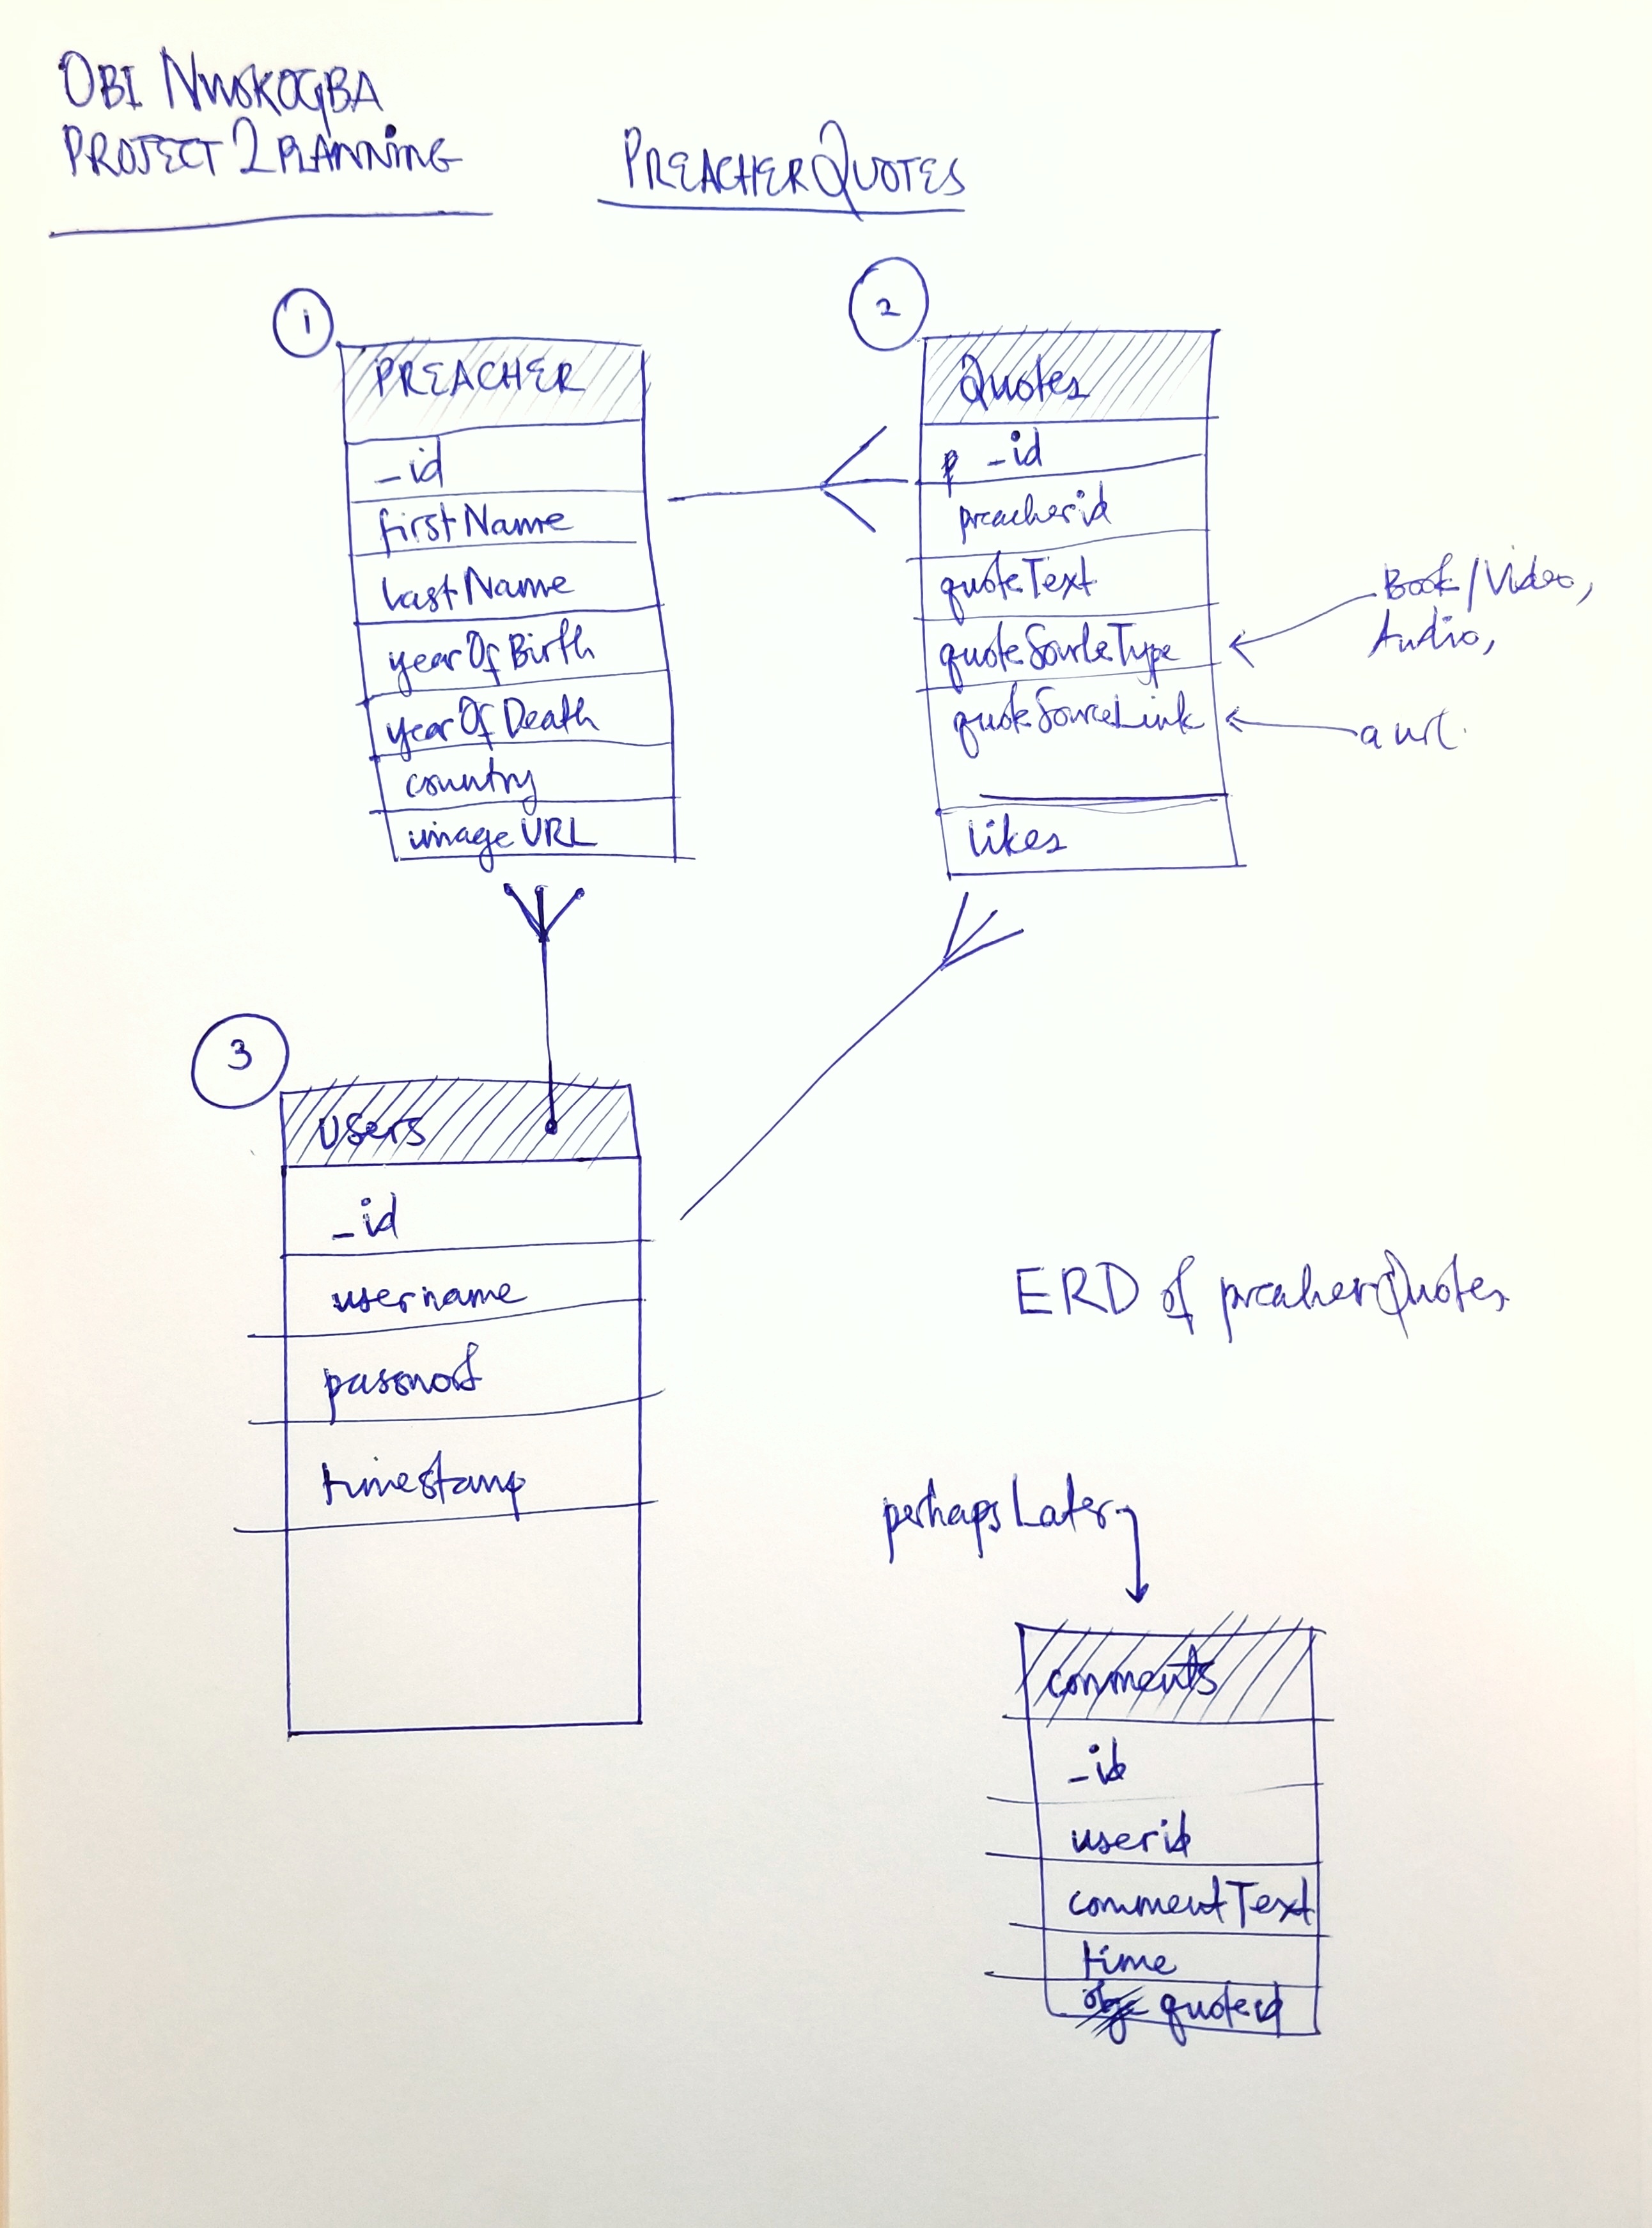 OBI NWOKOGBA
PROJECT 2 PLANNING
PREACHERQUOTES
1
PREACHER
_id
firstName
lastName
yearOfBirth
yearOfDeath
country
imageURL
2
Quotes
_id
preacherid
quoteText
quoteSourceType
quoteSourceLink
likes
Book/Video,
Audio,
a url.
3
Users
_id
username
password
timestamp
ERD of preacherQuotes
perhaps Later
comments
_id
userid
commentText
time
quoteid